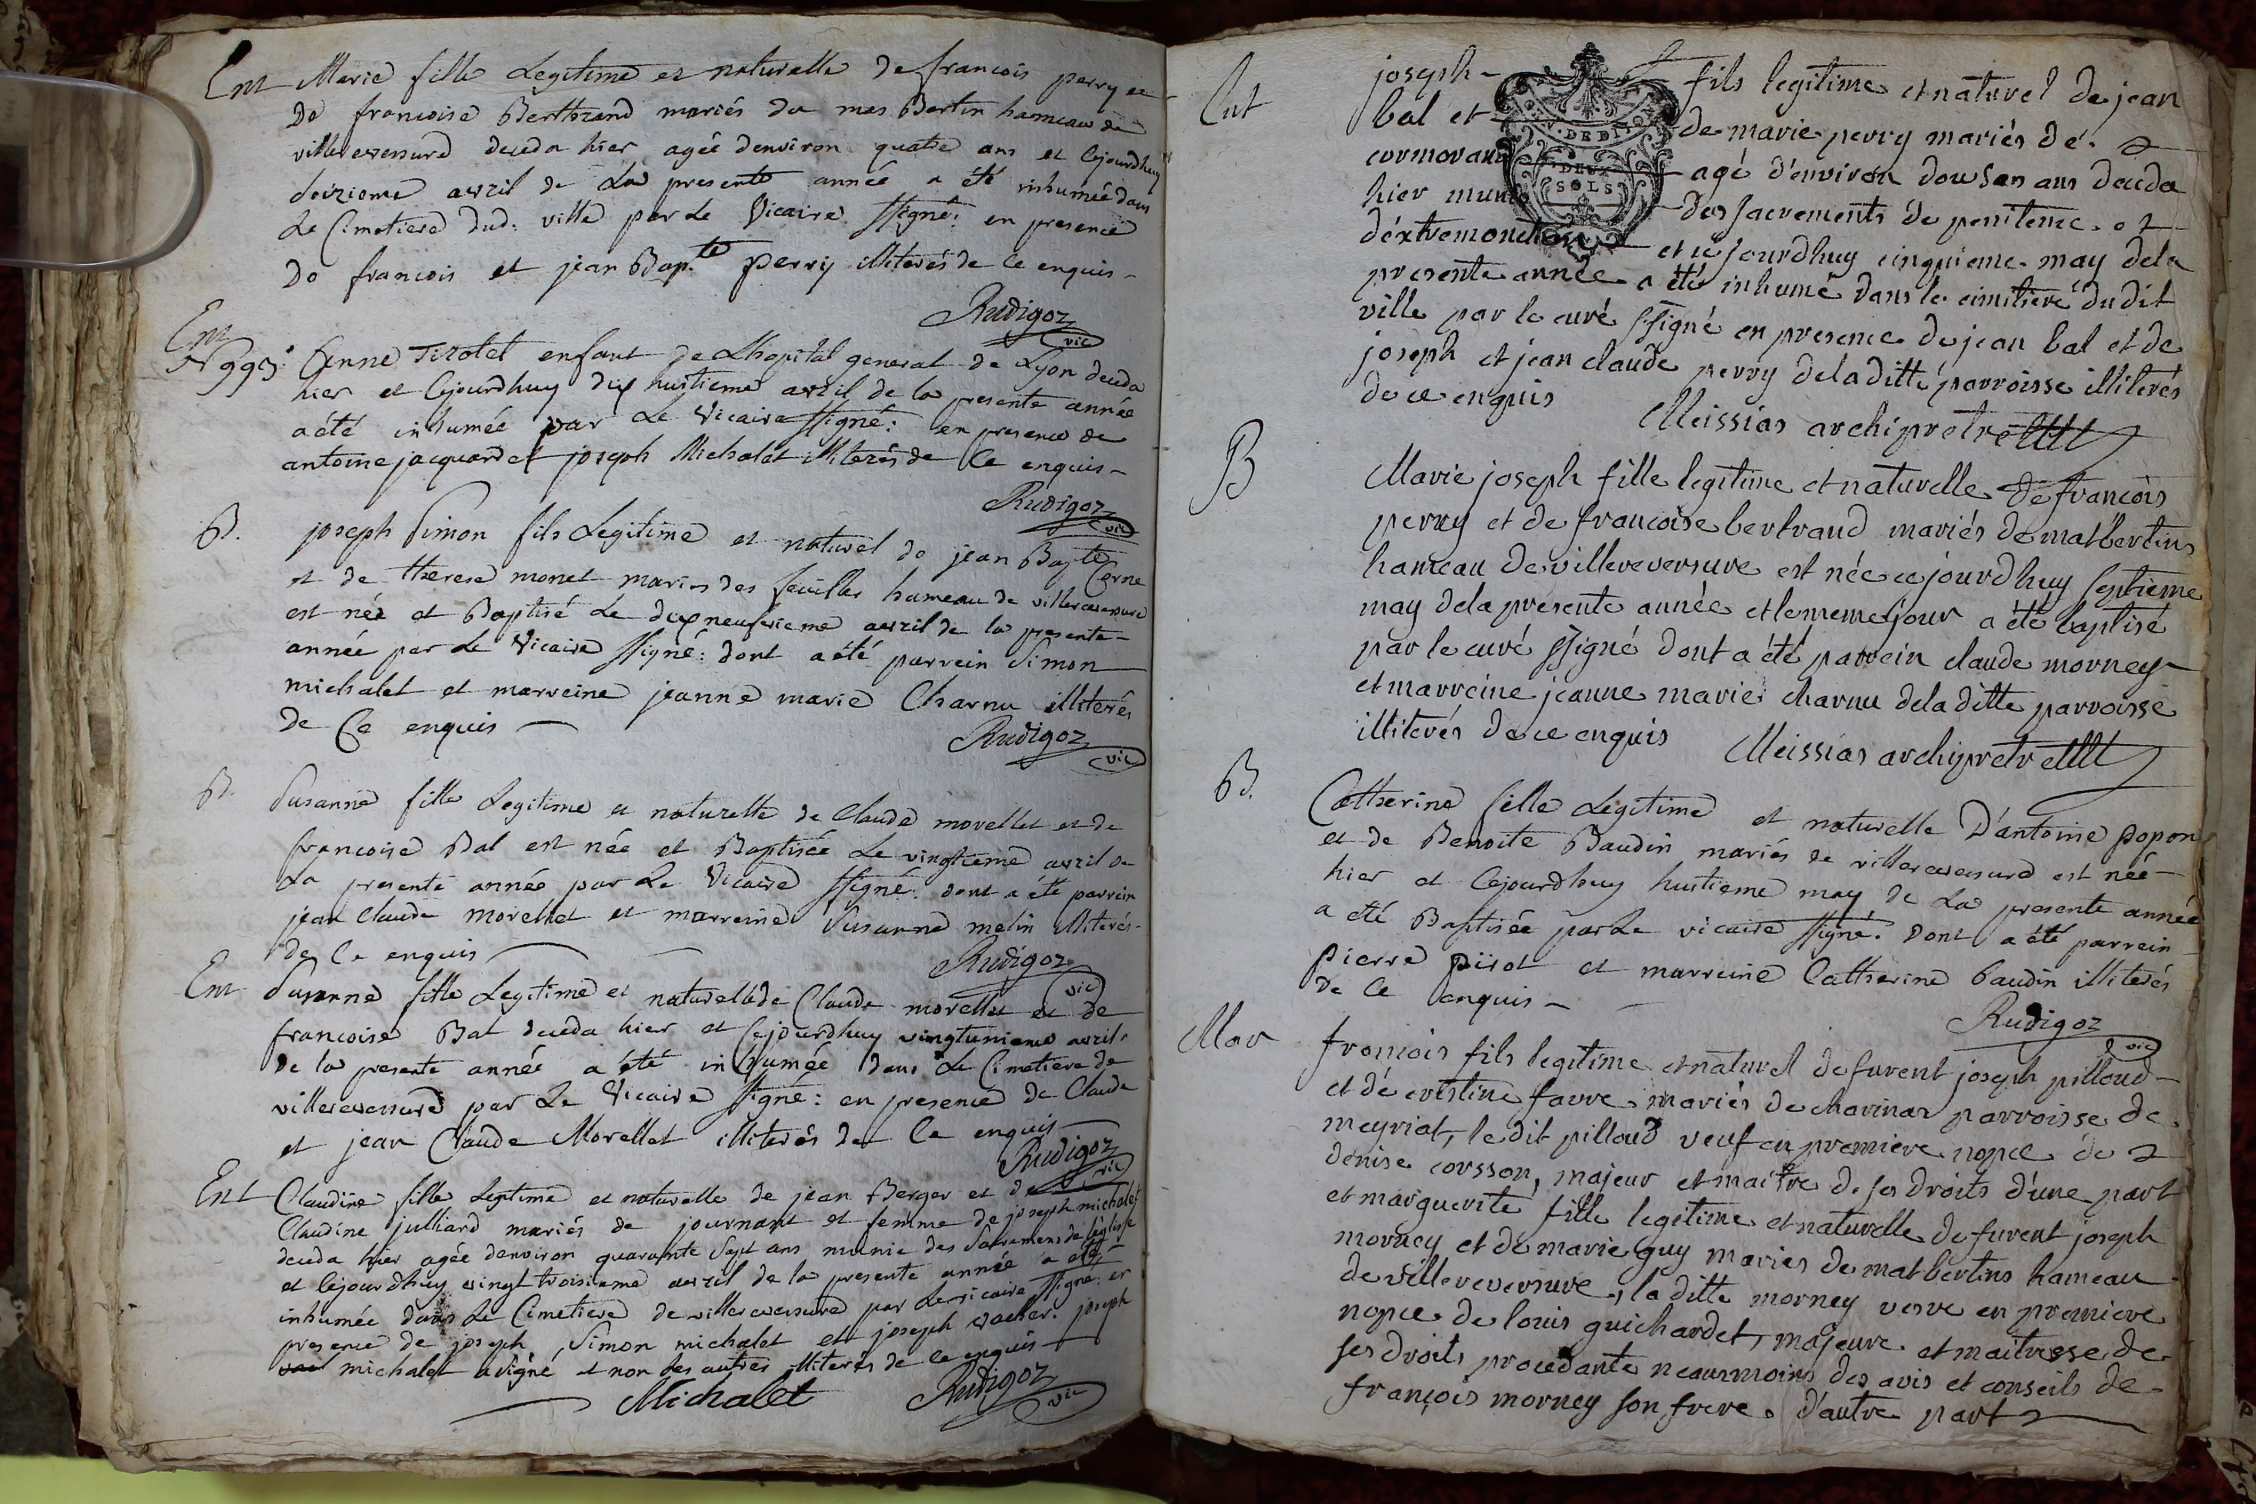 Ent Marie fille Legitime et naturelle de francois perry et
De francoise Berthrand mariés du mas Bertin hameau de
villereversure deceda hier agée denviron quatre ans et cejourdhuy
douzieme avril de La presente année a été inhumée dans
Le Cimetiere dud: ville par Le Vicaire ssigné: en presence
De francois et jean Bap.te perry illiterés de ce enquis -
Rudigoz vic
Ent
N 995: Anne Tirotet enfant de Lhopital general de Lyon deceda
hier et cejourdhuy dix huitieme avril de la presente année
a été inhumée par Le Vicaire ssigné: en presence de
antoine jacquard et joseph Michalet illiterés de Ce enquis -
Rudigoz vic
B. joseph Simon fils Legitime et naturel de jean Bapte Cerne
et de therese monet mariés des feuilles hameau de villereversure
est née et Baptisé Le dix neufvieme avril de la presente
année par Le Vicaire ssigné: dont a été parrein Simon
michalet et marreine jeanne marie Charnu illiterés
de Ce enquis
Rudigoz vic
B. Susanne fille Legitime et naturelle de Claude morellet et de
francoise Bal est née et Baptisée Le vingtieme avril de
La presente année par Le Vicaire ssigné: dont a été parrein
jean Claude morellet et marreine Susanne melin illiterés
de Ce enquis
Rudigoz vic
Ent Susanne fille Legitime et naturelle de Claude morellet et de
francoise Bal deceda hier et Cejourdhuy vingtunieme avril
de la presente année a été inhumée dans Le Cimetiere de
villereversure par Le Vicaire ssigné: en presence de Claude
et jean Claude Morellet illiterés de Ce enquis
Rudigoz vic
Ent Claudine fille Legitime et naturelle de jean Berger et de
Claudine julliard mariés de journant et femme de joseph michalet
deceda hier agée denviron quarante Sept ans munie des Sacremens de leglise
et cejourdhuy vingt troisieme avril de la presente année a été
inhumée dans Le Cimetiere de villereversure par Le vicaire ssigné: en
presence de joseph, Simon michalet et joseph vacher. joseph
michalet a signé et non les autres illiterés de ce enquis
Michalet Rudigoz vic
Ent joseph - fils legitime et naturel de jean
bal et de marie perry mariés de
cormoran agé d'environ dousan ans deceda
hier muni des sacrements de penitence et
d'extremonction et cejourdhuy cinquieme may dela
presente année a été inhumé dans le cimitiere dudit
ville par le curé ssigné en presence de jean bal et de
joseph et jean claude perry dela ditte parroisse illiterés
de ce enquis Meissias archiprêtre
V. DEBIT
DEUX
SOLS
B Marie joseph fille legitime et naturelle de francois
perry et de francoise bertrand mariés de matbertins
hameau de villereversure est née cejourdhuy septieme
may dela presente année et le meme jour a été baptisé
par le curé ssigné dont a été parrein claude morney
et marreine jeanne marie charnu dela ditte parroisse
illiterés de ce enquis Meissias archiprêtre
B. Catherine fille Legitime et naturelle D'antoine popon
et de Benoite Baudin mariés de villereversure est née
hier et Cejourdhuy huitieme may de La presente année
a été Baptisée par Le vicaire ssigné: Dont a été parrein
Pierre pirot et marreine Catherine baudin illiterés
de Ce enquis -
Rudigoz vic
Mar françois fils legitime et naturel de furent joseph pilloud
et de cristine favre mariés de charinas parroisse de
meyriat, le dit pilloud veuf en premiere nopce de
denise corsson, majeur et maitre de ses droits d'une part
et marguerite fille legitime et naturelle de furent joseph
morney et de marie guy mariés de matbertins hameau
de villereversure, la ditte morney veuve en premiere
nopce de louis guichardet, majeure et maitresse de
ses droits procedante neaunmoins des avis et conseils de
françois morney son frere. d'autre part